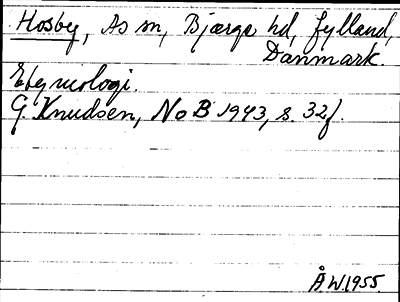 Hosby, As sn, Bjærge hd, Jylland,
Danmark.
Etymologi.
G. Knudsen, NoB 1943, s. 32f.
ÅW.1955